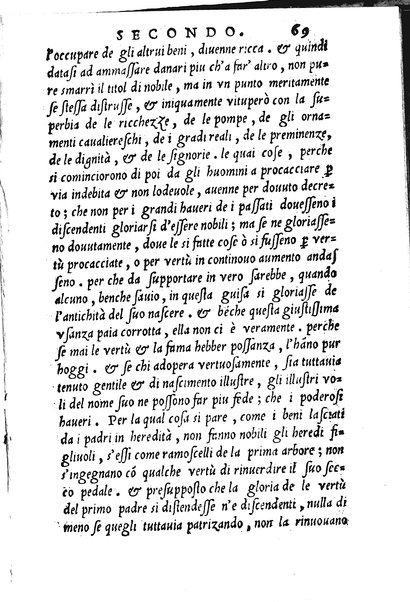 SECONDO. 69
l'occupare de gli altrui beni, diuenne ricca. & quindi
datasi ad ammassare danari piu ch'a far' altro, non pu-
re smarrì il titol di nobile, ma in vn punto meritamente
se stessa distrusse, & iniquamente vituperò con la su-
perbia de le ricchezze, de le pompe, de gli orna-
menti caualiereschi, de i gradi reali, de le preminenze,
de le dignità, & de le signorie. le quai cose, perche
si cominciorono di poi da gli huomini a procacciare ꝑ
via indebita & non lodeuole, auenne per douuto decre-
to; che non per i grandi haueri de i passati douesseno i
discendenti gloriarsi d'essere nobili; ma se ne gloriasse-
no douutamente, doue le si fatte cose ò si fusseno ꝑ ver-
tù procacciate, o per vertù in continouo aumento andas
seno. per che da supportare in vero sarebbe, quando
alcuno, benche sauio, in questa guisa si gloriasse de
l'antichità del suo nascere. & bẽche questa giustissima
vsanza paia corrotta, ella non ci è veramente. perche
se mai le vertù & la fama hebber possanza, l'hãno pur
hoggi. & se chi adopera vertuosamente, sia tuttauia
tenuto gentile & di nascimento illustre, gli illustri vo-
li del nome suo ne possono far piu fede; che i poderosi
haueri. Per la qual cosa si pare, come i beni lasciati
da i padri in heredità, non fanno nobili gli heredi fi-
gliuoli, s'essi come ramoscelli de la prima arbore; non
s'ingegnano cõ qualche vertù di rinuerdire il suo sec-
co pedale. & presupposto che la gloria de le vertù
del primo padre si distendesse n'e discendenti, nulla di
meno se quegli tuttauia patrizando, non la rinuouano